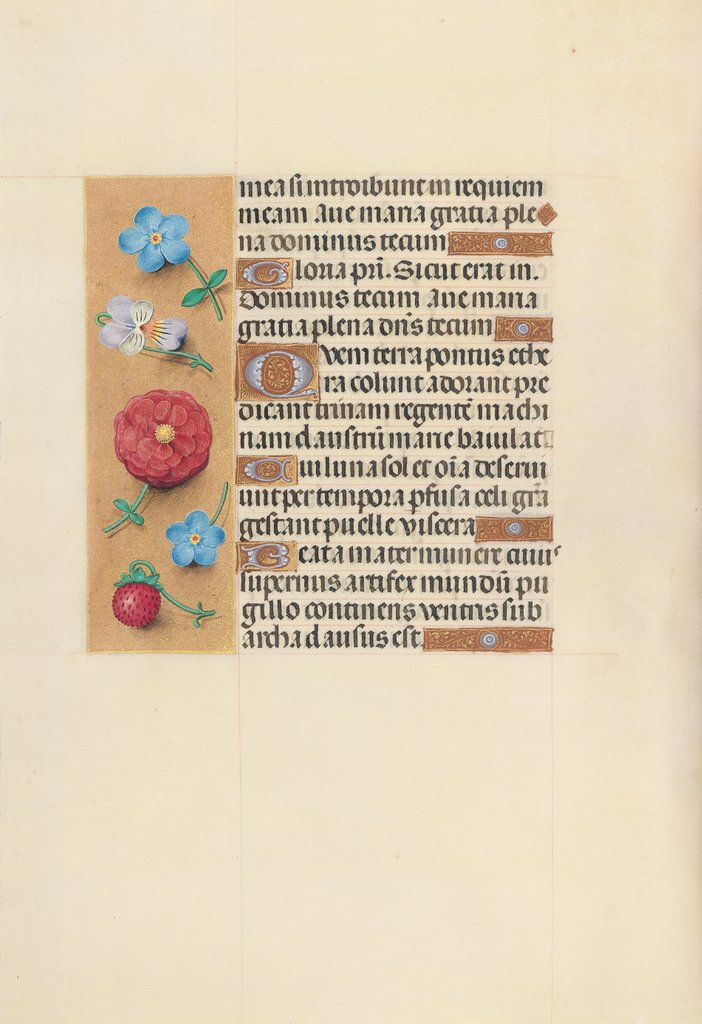 mea si introibunt in requiem
meam Aue maria gratia ple
na dominus tecum
Gloria pr̃i. Sicut erat in.
Dominus tecum aue maria
gratia plena dñs tecum
Quem terra pontus ethe
ra colunt adorant pre
dicant trinam regentẽ machi
nam claustrũ marie baiulat
Cui luna sol et oĩa deserui
unt per tempora pfusa celi grã
gestant puelle viscera
Beata mater munere cuius
supernus artifex mundũ pu
gillo continens ventris sub
archa clausus est